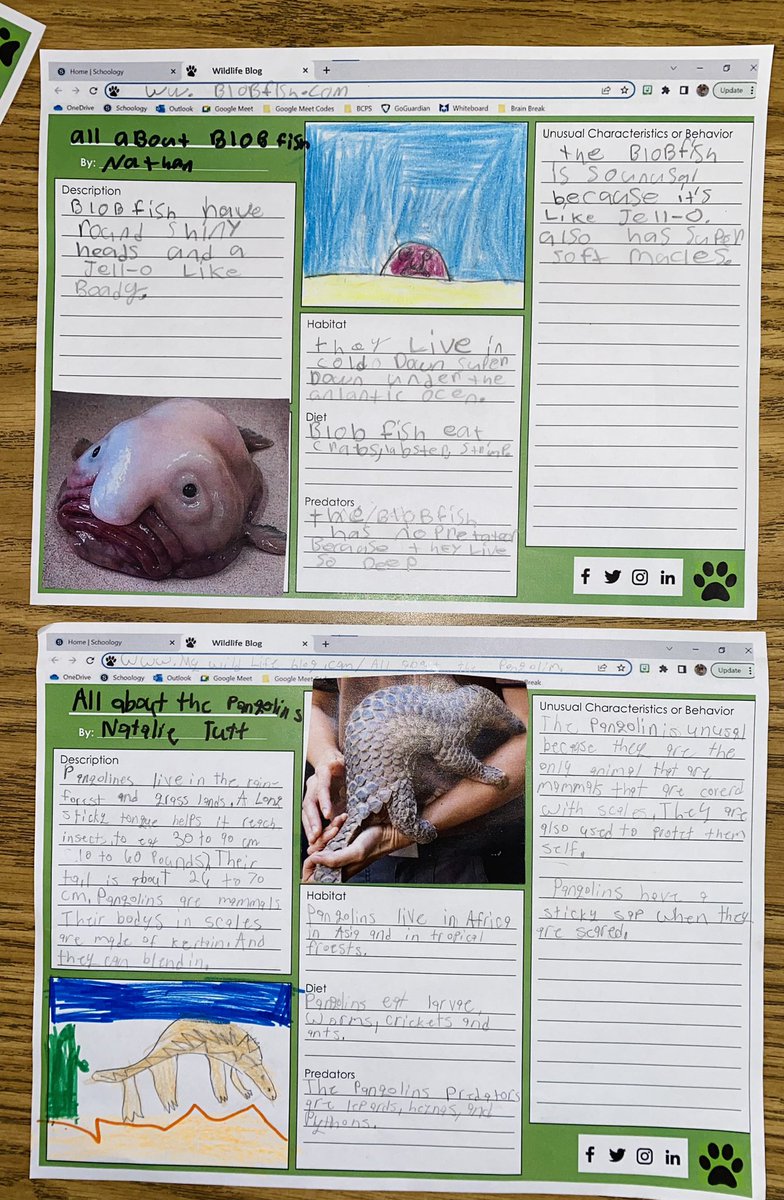 Home | Schoology
Wildlife Blog
ww. BloBfish.com
Update
OneDrive Schoology Outlook Google Meet Google Meet Codes BCPS GoGuardian Whiteboard Brain Break
all aBout BlOBfish
By: Nathan
Description
BlOBfish have
round shiny
heads and a
Jell-O Like
Boady.
Habitat
they Live in
cold Down super
Down under the
antlantic ocen.
Diet
Blob fish eat
crabs, labster,
Predators
the BlOBfish
has no Pretater
Because they Live
so Deep
Unusual Characteristics or Behavior
the BlOBfish
is sounusal
because it's
Like Jell-O.
also has super
soft macles.
Home | Schoology
Wildlife Blog
www.My wild Life blog.com/All about the Pangolin.
Update
OneDrive Schoology Outlook Google Meet Break
All about the Pangolins
By: Natalie Tutt
Description
Pangolines live in the rain-
forest and grass lands. A Long
sticky tongue helps it reach
insects to eat 30 to 90 cm
10 to 60 Pounds. Their
tail is about 26 to 70
cm. Pangolins are mammals
Their bodys in scales
are made of kertain. And
they can blend in.
Habitat
Pangolins live in Africa
in Asia and in tropical
froests.
Diet
Pangolins eat larvae,
worms, crickets and
ants.
Predators
The Pangolins Predators
are lepards, heynas, and
Pythons.
Unusual Characteristics or Behavior
The Pangolin is unusal
because they are the
only animal that are
mammals that are coverd
with scales. They are
also used to protet them
self.
Pangolins have a
sticky sap when they
are scared.